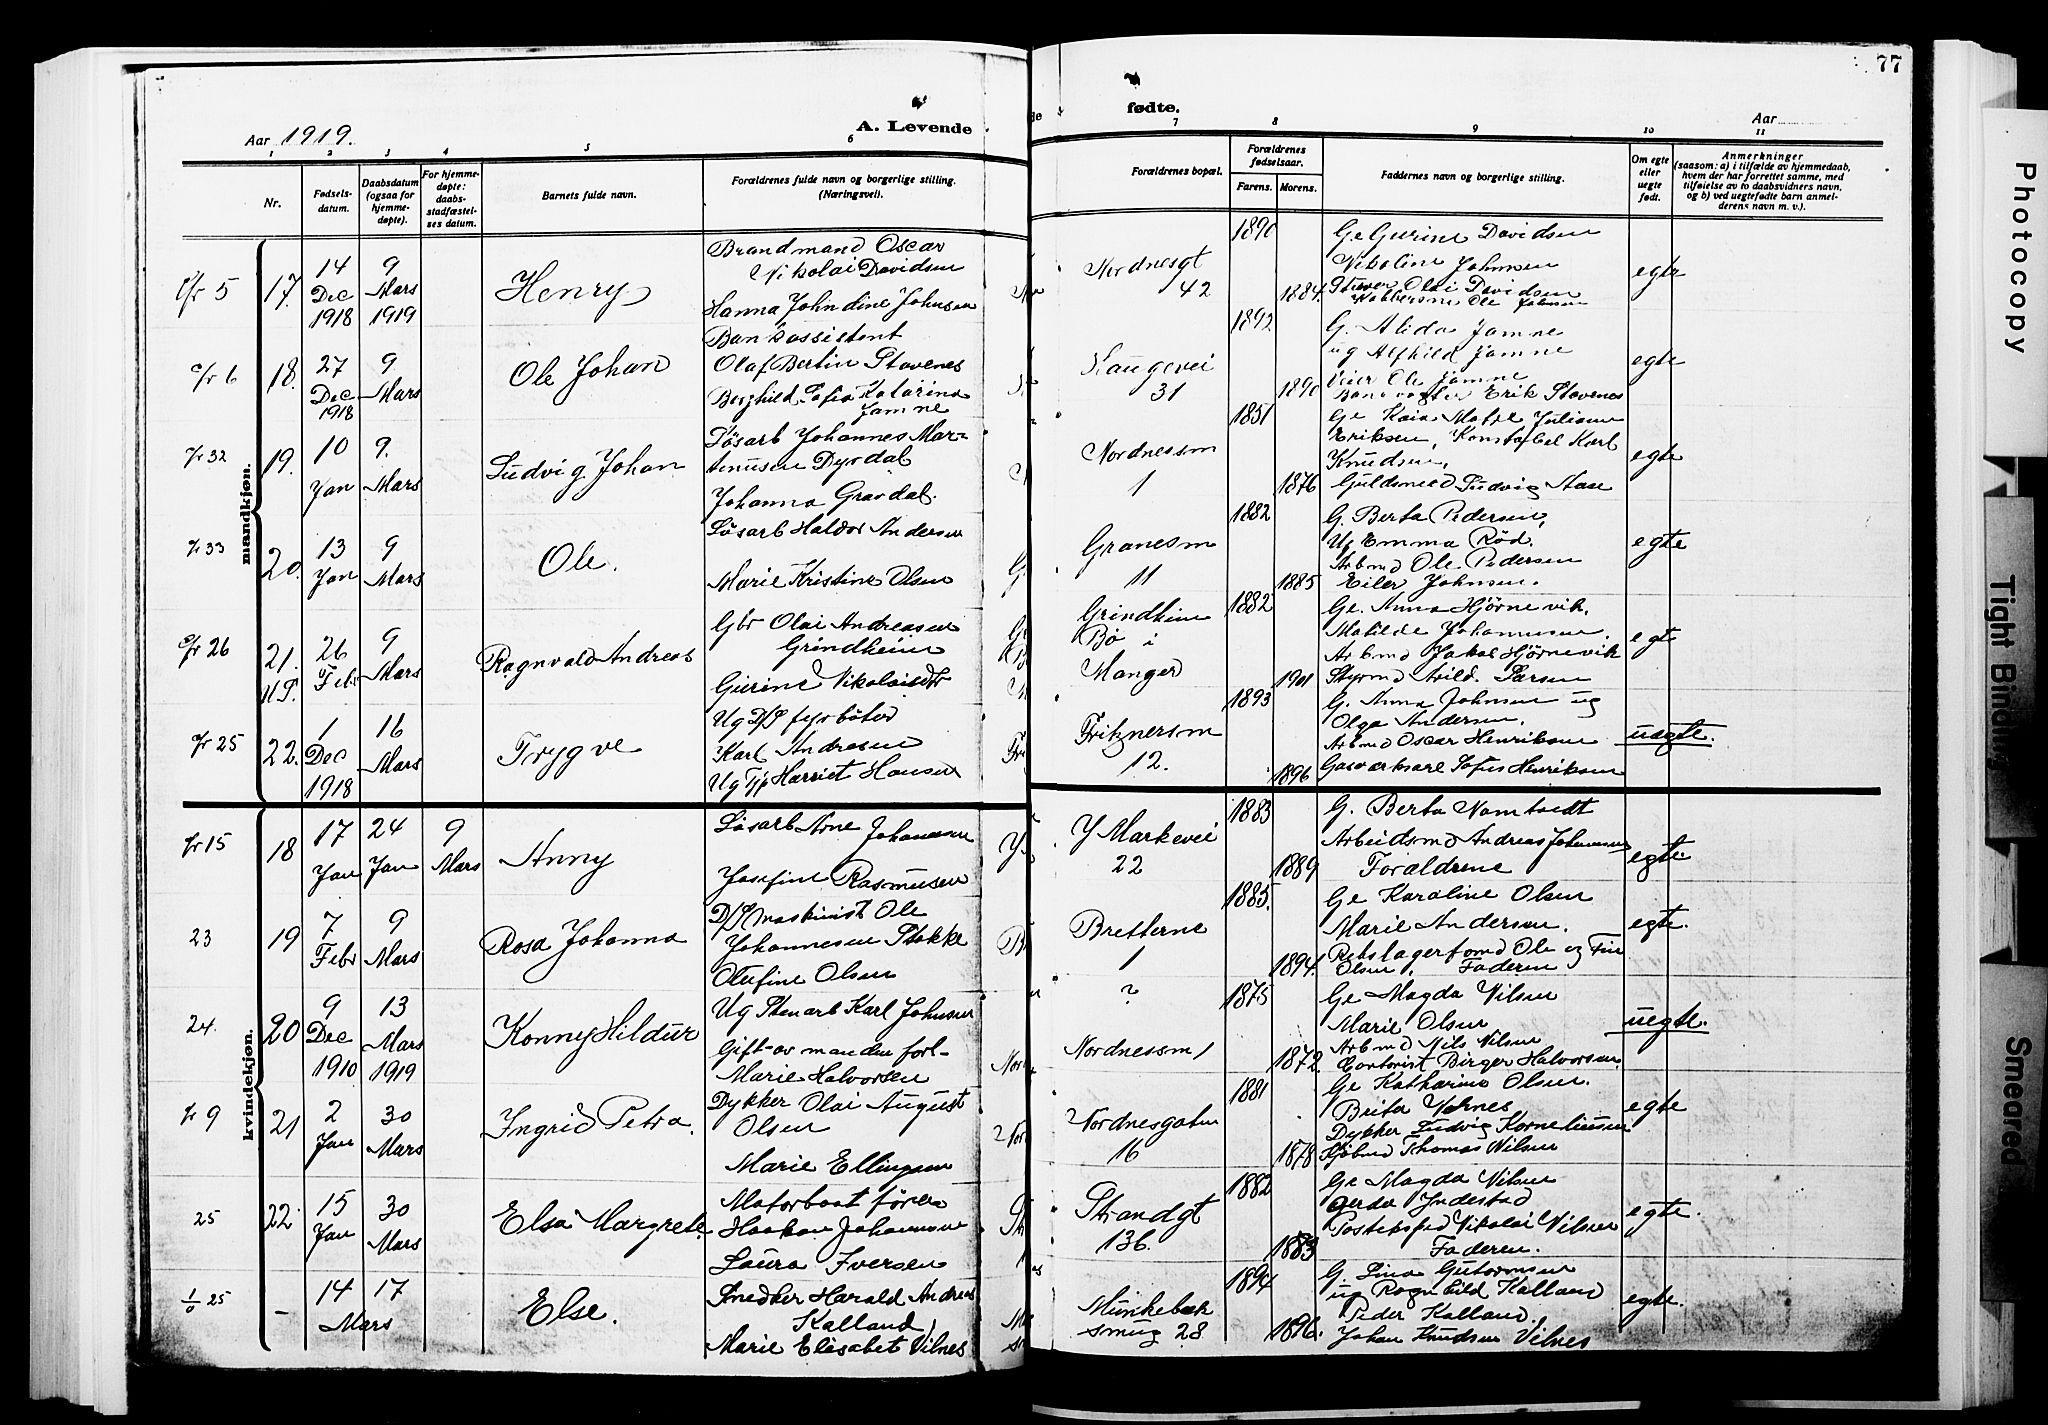 77
Aar 1919.
A. Levende
fødte.
Aar
1 2 3 4 5 6 7 8 9 10 11
Nr.
Fødsels-
datum.
Daabsdatum
(ogsaa for
hjemme-
døpte).
For hjemme-
døpte:
daabs-
stadfæstel-
ses datum.
Barnets fulde navn.
Forældrenes fulde navn og borgerlige stilling.
(Næringsvei).
Forældrenes bopæl.
Forældrenes
fødselsaar.
Farens. Morens.
Faddernes navn og borgerlige stilling.
Om egte
eller
uegte
født.
Anmerkninger
(saasom: a) i tilfælde av hjemmedaab,
hvem der har forrettet samme, med
tilføielse av to daabsvidners navn,
og b) ved uegtefødte barn anmel-
derens navn m. v.).
mandkjøn.
5 17. 14 Dec 1918 9 Mars 1919 Henry
Brandmand Oscar
Nikolai Davidsen
Hanna Johndine Johnsen
Nordnesgt
42
1890 1884.
Ge Gurine Davidsen
Nikoline Johnsen
Olai Davidsen
Ole Johnsen
egte
6 18. 27 Dec 1918 9 Mars Ole Johan
Bankassistent
Olaf Bertin Stavenes
Berghild Sofie Katarina
Jamne
Haugevei
31
1892 1890
G. Alida Jamne
ug Alfhild Jamne
Ole Jamne
Banevogter Erik Stavenes
egte
32 19. 10 Jan 9. Mars Ludvig Johan
Løsarb Johannes Mar-
tinusen Dyrdal
Johanna Gravdal.
Nordnessm
1
1851 1876
Ge Kaia Matre Juliane
Eriksen, Konstabel Karl
Knudsen,
Guldsmed Ludvig Aase
egte
33 20. 13 Jan 9 Mars Ole.
Løsarb Haldor Andersen
Marie Kristine Olsen
Granesm
11
1882 1885
G. Berta Pedersen,
Ug Emma Rød.
Arbmd Ole Pedersen
Eiler Johnsen.
egte
26 21. 26 Febr 9 Mars Ragnvald Andreas
Gbr Olai Andreasen
Grindheim
Gurine Nikolaisdtr
Grindheim
Bø i
Manger
1882 1901
Ge. Anna Hjørnevik.
Matilde Johannesen.
Arbmd Jakob Hjørnevik
Styrmd Arild. Larsen
egte
25 22. 1 Dec 1918 16 Mars Trygve
Ug D/S fyrbøter
Karl Andresen
Ug Tjp Harriet Hansen
Fritznersm
12.
1893 1896
G. Anna Johnsen ug
Olga Andersen.
Arbmd Oscar Henriksen
Gasværksarb Sofus Henriksen
uegte.
kvindekjøn.
15 18 17 Jan 24 Jan 9 Mars Anny
Løsarb Arne Johannesen
Josefine Rasmussen
Y Markevei
22
1883 1889
G. Berta Namtvedt
Arbeidsmd Andreas Johannesen
Forældrene
egte.
23 19 7 Febr 9 Mars Rosa Johanna
D/S maskinist Ole
Johannesen Stokke
Olufine Olsen
Bretterne
1
1885. 1894.
Ge Karoline Olsen
Marie Andersen.
Rebslagerformd Ole og Fin
Olsen. Faderen
egte.
24. 20 9 Dec 1910 13 Mars 1919 Konny Hildur
Ug Stenarb Karl Johnsen
Gift - av manden forl-
Marie Halvorsen
?
Nordnessm 1
1875 1872.
Ge Magda Nilsen
Marie Olsen
Arbmd Nils Nilsen
Contorist Birger Halvorsen.
uegte.
9 21 2 Jan 30 Mars Ingrid Petra.
Dykker Olai August
Olsen
Marie Ellingsen
Nordnesgaten
16
1881 1878
Ge Katharina Olsen.
Brita Vefnes
Dykker Ludvig Korneliussen
Kjøbmd Thomas Nilsen
egte
25 22. 15 Jan 30 Mars Elsa Margrete.
Motorbaat fører
Haakon Johannesen
Laura Iversen
Strandgt
136.
1882 1883
Ge Magda Nilsen
Gerda Indestad
Posteksped Nikolai Nilsen
Faderen.
egte.
25 - 14 17 Mars Else.
Snedker Harald Andreas
Kalland
Marie Elisabet Vilnes
Munkebæk
smug 28
1894 1896.
G. Lina Guttormsen
ug Ragnhild Kalland
Peder Kalland.
Johan Knudsen Vilnes
egte.
Photocopy
Tight Binding
Smeared